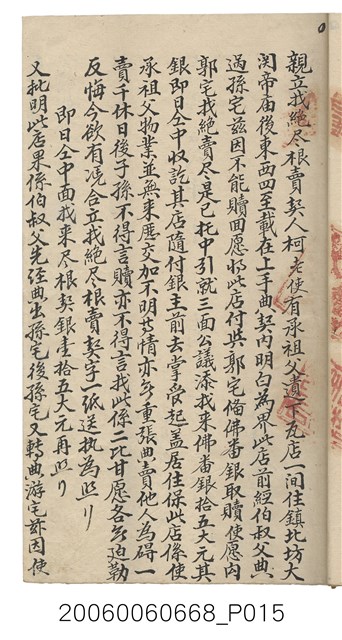 親立找絕尽根賣契人柯老使有承祖父遺下瓦店一间住鎮北坊大
関帝庙後東西四至載在上手典契内明白為界此店前經伯叔父典
過孫宅兹因不能贖囬愿将此店付與郭宅俻佛畨銀取贖使愿向
郭宅找絕賣尽是已托中引就三面公議添找来佛畨銀拾五大元其
銀即日仝中收訖其店隨付銀主前去掌受起盖居住保此店係使
承祖父物業並無来歷交加不明等情亦無重張典賣他人為碍一
賣千休日後子孫不得言贖亦不得言找此係二比甘愿各無迫勒
反悔今欲有凴合立找絕尽根賣契字一纸送执為炤
即日仝中面找来尽根契銀壹拾五大元再炤
又批明此店果係伯叔父先經典出孫宅後孫宅又轉典游宅兹因使
20060060668_P015